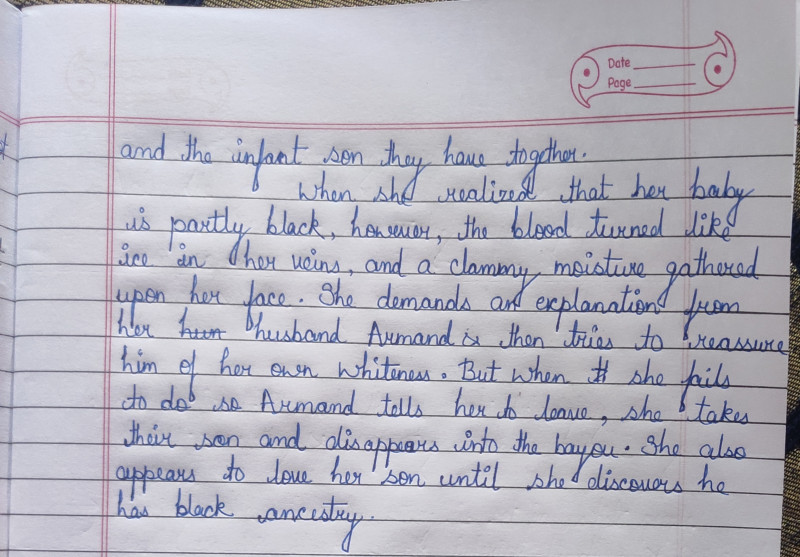 Date
Page
and the infant son they have together.
When she realized that her baby
is partly black, however, the blood turned like
ice in her veins, and a clammy moisture gathered
upon her face. She demands an explanation from
her husband Armand is then tries to reassure
him of her own whiteness. But when she fails
to do so Armand tells her to leave, she takes
their son and disappears into the bayou. She also
appears to love her son until she discovers he
has black ancestry.